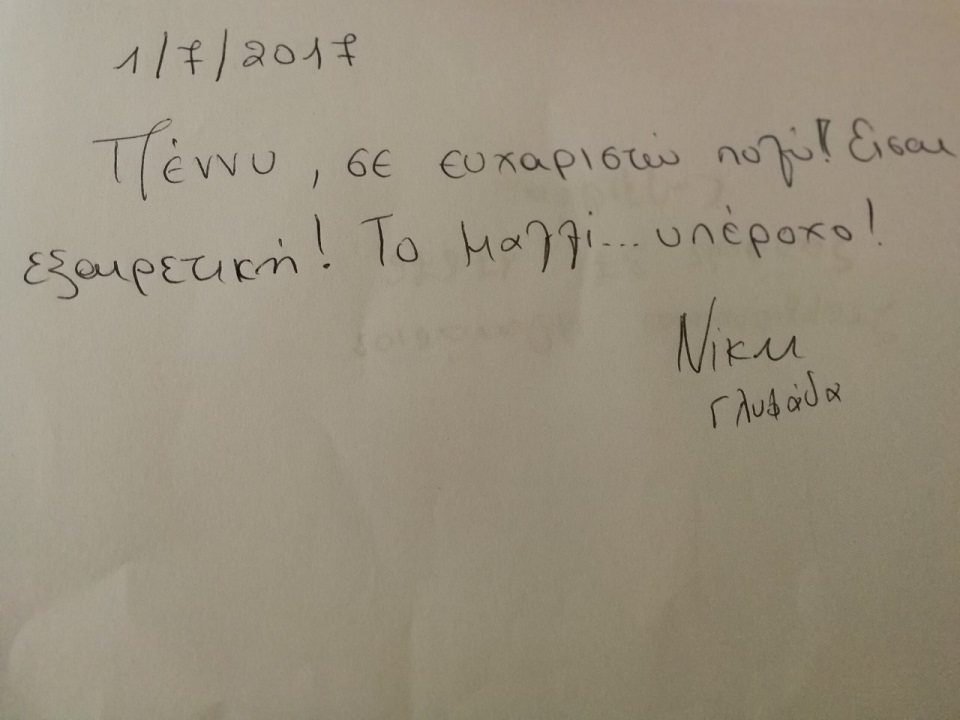 1/7/2017
Πέννυ, σε ευχαριστώ πολύ! Είσαι
εξαιρετική! Το μαλλί... υπέροχο!
Νίκη
Γλυφάδα